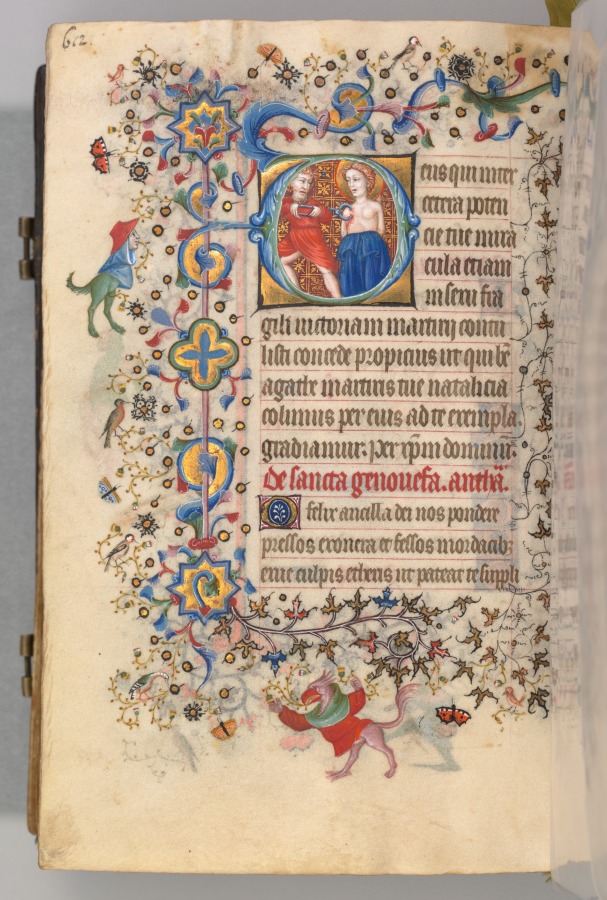 612.
Deus qui inter
cetera poten
cie tue mira
cula etiam
in sexu fra
gili uictoriam martirij contu
listi concede propicius ut qui bẽ
agathe martiris tue natalicia
colimus per eius ad te exempla
gradiamur. per xp̃m dominũ.
De sancta genouefa. anthã.
O felix ancilla dei nos pondere
pressos exonera et fessos mordacibꝫ
erue culpis etheris ut pateat te suppli